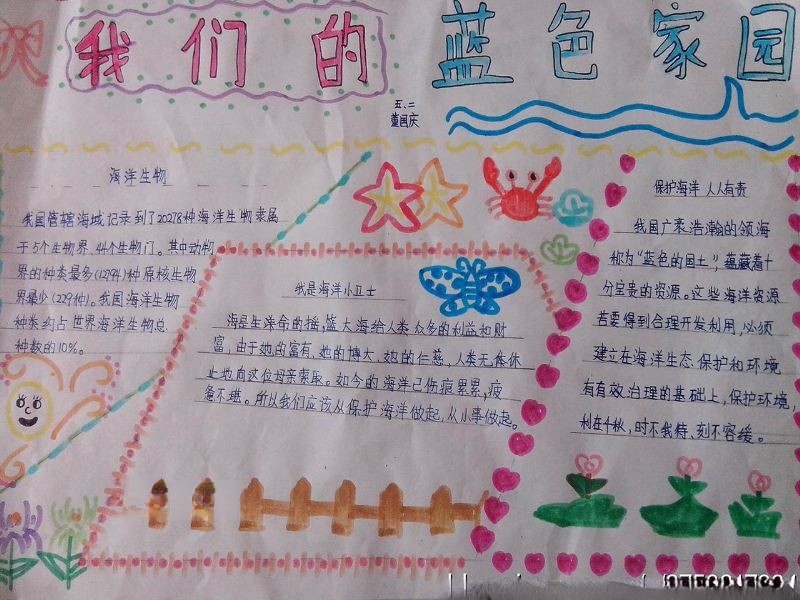 我们的 蓝色家园
五、二
董国庆
海洋生物
我国管辖海域记录到了20278种海洋生物隶属
于5个生物界、44个生物门。其中动物
界的种类最多(12794)种原核生物
界最少(229种)。我国海洋生物
种类约占世界海洋生物总
种数的10%。
我是海洋小卫士
海是生命的摇篮大海给人类众多的利益和财
富,由于她的富有、她的博大、她的仁慈,人类无休休
止地向这位母亲索取。如今的海洋已伤痕累累,疲
惫不堪。所以我们应该从保护海洋做起,从小事做起。
保护海洋 人人有责
我国广袤浩瀚的领海
称为“蓝色的国土”,蕴藏着十
分宝贵的资源。这些海洋资源
若要得到合理开发利用,必须
建立在海洋生态、保护和环境
有有效治理的基础上,保护环境,
利在千秋,时不我待、刻不容缓。